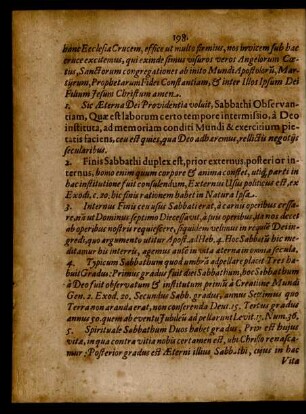 198.
hanc Ecclesiæ Crucem, effice ut multo firmius, nos brvicem sub hac
cruce excitemus, qui exinde simus visuros veros Angelorum Cœ-
tus, Sanctorum congregationes ab inito Mundi Apostolorũ, Mar-
tyrum, Prophetarum Fidei Constantiam, & inter Illos Ipsum Dei
Filium Jesum Christum amen.
1. Sic Æterna Dei Providentia voluit, Sabbathi Observan-
tiam, Quæ est laborum certo tempore intermissio, à Deo
instituta, ad memoriam conditi Mundi & exercitium pie-
tatis faciens, ceu est quies, qua Deo adhæremus, relictis negotijs
secularibus.
2. Finis Sabbathi duplex est, prior externus, posterior in-
ternus, homo enim quum corpore & anima constet, utiq; parti in
hac institutione fuit consulendum, Externus Usus politicus est, ex
Exod. c. 20. hic finis rationem habet in Natura Ipsa.
3. Internus Finis cro usus Sabbati erat, à carnis operibus cessa-
re, a nã ut Dominus septimo Die cessavit, à suis operibus, ita nos decet
ab operibus nostris requiescere, siquidem velimus in requiẽ Dei in-
gredi, quo argumento utitur Apost. ad Heb. 4. Hoc Sabbatũ hic me-
ditamur bis interris, agemus autẽ in vita æterna in omnia secula.
4. Typicum Sabbathum quod umbrã adpellare placet Tres ha-
buit Gradus: Primus gradus fuit diei Sabbathum, hoc Sabbathum
à Deo fuit observatum & institutum primũ à Creatione Mundi
Gen. 2. Exod. 20, Secundus Sabb. gradus, annus Septimus quo
Terra non aranda erat, non conferenda Deut. 15. Tertius gradus
annus 50. quem ab eventu Jubilæũ adpellarunt Levit. 15. Num. 36,
5. Spirituale Sabbathum Duos habet gradus, Prior est hujus
vitæ, in qua contra vitia nobis certamen est, ubi Christo renasca-
mur: Posterior gradus est Æterni illius Sabbathi, cujus in hac
Vita